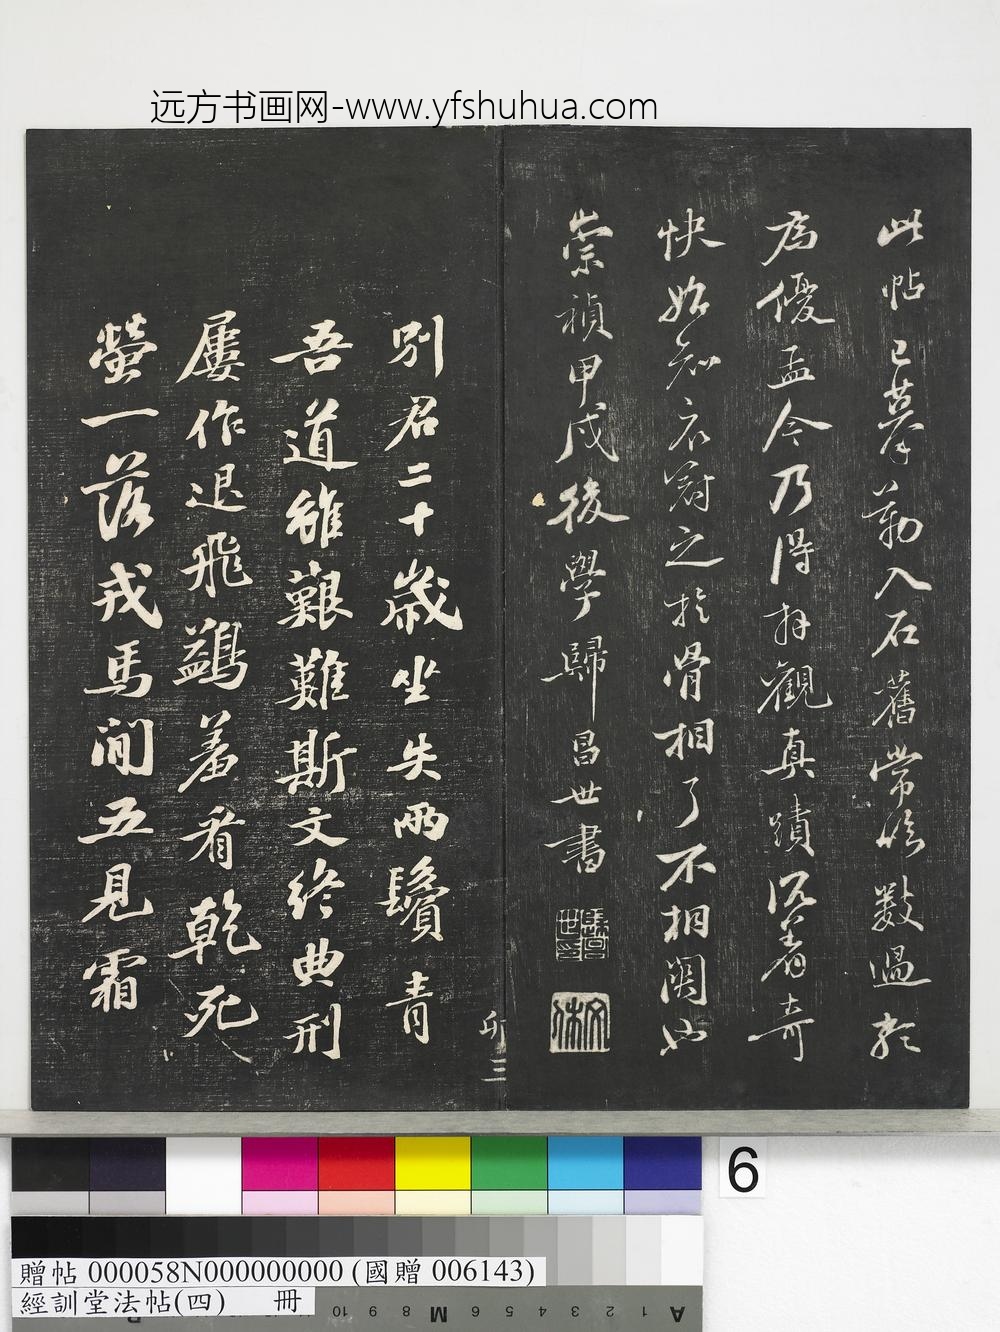 远方书画网-www.yfshuhua.com
此帖已摹勒入石舊常臨數過於
為優孟今乃得拜觀真蹟沉著奇
快始知衣冠之於骨相了不相關也
崇禎甲戌後學歸昌世書
文休
别君二十歲坐失兩鬢青
吾道雖艱難斯文終典刑
屢作退飛鷁羞看乾死
螢一落戎馬間五見霜
卯三
6
贈帖 000058N000000000 (國贈 006143)
經訓堂法帖(四) 冊
A 1 2 3 4 5 6 M 8 9 10